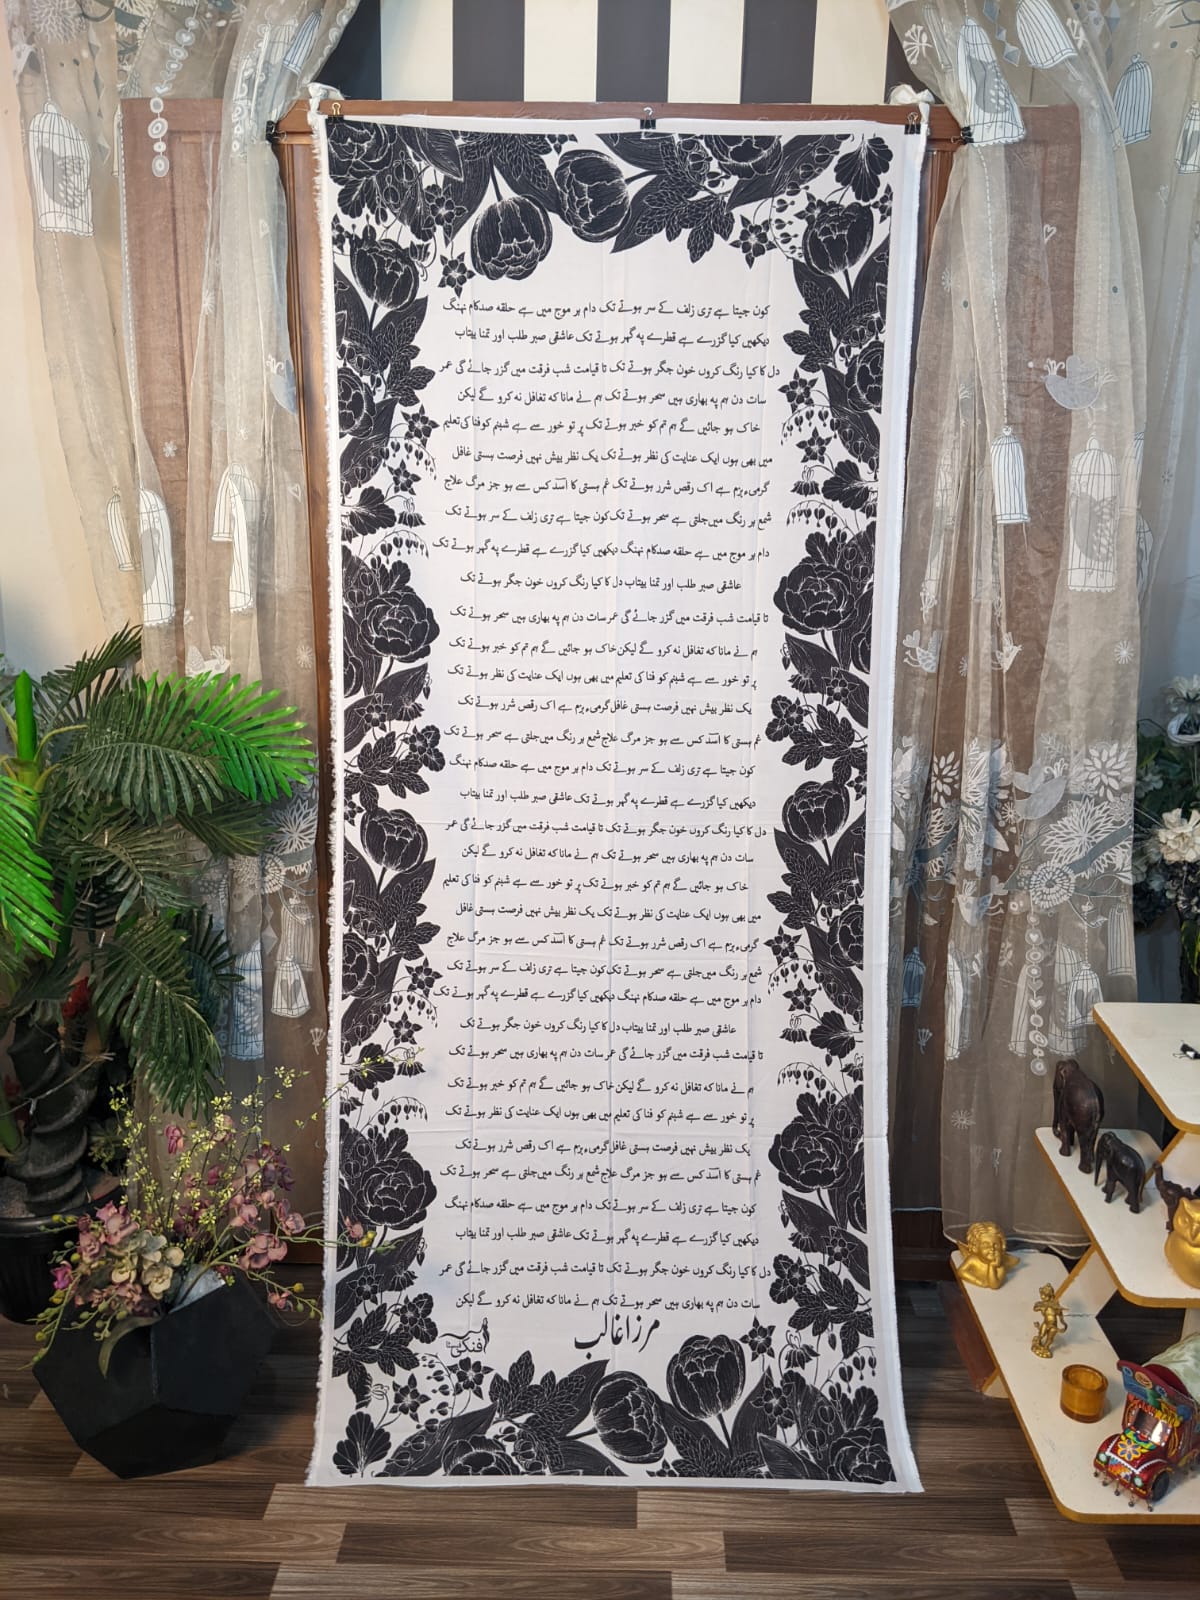 کون جیتا ہے تری زلف کے سر ہوتے تک دام ہر موج میں ہے حلقہ صدکام نہنگ
دیکھیں کیا گزرے ہے قطرے پہ گہر ہوتے تک عاشقی صبر طلب اور تمنا بیتاب
دل کا کیا رنگ کروں خون جگر ہوتے تک تا قیامت شب فرقت میں گزر جائے گی عمر
سات دن ہم پہ بھاری ہیں سحر ہوتے تک ہم نے مانا کہ تغافل نہ کرو گے لیکن
خاک ہو جائیں گے ہم تم کو خبر ہوتے تک پر تو خور سے ہے شبنم کو فنا کی تعلیم
میں بھی ہوں ایک عنایت کی نظر ہوتے تک یک نظر بیش نہیں فرصت ہستی غافل
گرمیء بزم ہے اک رقص شرر ہوتے تک غم ہستی کا اسد کس سے ہو جز مرگ علاج
شمع ہر رنگ میں جلتی ہے سحر ہوتے تک کون جیتا ہے تری زلف کے سر ہوتے تک
دام ہر موج میں ہے حلقہ صدکام نہنگ دیکھیں کیا گزرے ہے قطرے پہ گہر ہوتے تک
عاشقی صبر طلب اور تمنا بیتاب دل کا کیا رنگ کروں خون جگر ہوتے تک
تا قیامت شب فرقت میں گزر جائے گی عمر سات دن ہم پہ بھاری ہیں سحر ہوتے تک
ہم نے مانا کہ تغافل نہ کرو گے لیکن خاک ہو جائیں گے ہم تم کو خبر ہوتے تک
پر تو خور سے ہے شبنم کو فنا کی تعلیم میں بھی ہوں ایک عنایت کی نظر ہوتے تک
یک نظر بیش نہیں فرصت ہستی غافل گرمیء بزم ہے اک رقص شرر ہوتے تک
غم ہستی کا اسد کس سے ہو جز مرگ علاج شمع ہر رنگ میں جلتی ہے سحر ہوتے تک
کون جیتا ہے تری زلف کے سر ہوتے تک دام ہر موج میں ہے حلقہ صدکام نہنگ
دیکھیں کیا گزرے ہے قطرے پہ گہر ہوتے تک عاشقی صبر طلب اور تمنا بیتاب
دل کا کیا رنگ کروں خون جگر ہوتے تک تا قیامت شب فرقت میں گزر جائے گی عمر
سات دن ہم پہ بھاری ہیں سحر ہوتے تک ہم نے مانا کہ تغافل نہ کرو گے لیکن
خاک ہو جائیں گے ہم تم کو خبر ہوتے تک پر تو خور سے ہے شبنم کو فنا کی تعلیم
میں بھی ہوں ایک عنایت کی نظر ہوتے تک یک نظر بیش نہیں فرصت ہستی غافل
گرمیء بزم ہے اک رقص شرر ہوتے تک غم ہستی کا اسد کس سے ہو جز مرگ علاج
شمع ہر رنگ میں جلتی ہے سحر ہوتے تک کون جیتا ہے تری زلف کے سر ہوتے تک
دام ہر موج میں ہے حلقہ صدکام نہنگ دیکھیں کیا گزرے ہے قطرے پہ گہر ہوتے تک
عاشقی صبر طلب اور تمنا بیتاب دل کا کیا رنگ کروں خون جگر ہوتے تک
تا قیامت شب فرقت میں گزر جائے گی عمر سات دن ہم پہ بھاری ہیں سحر ہوتے تک
ہم نے مانا کہ تغافل نہ کرو گے لیکن خاک ہو جائیں گے ہم تم کو خبر ہوتے تک
پر تو خور سے ہے شبنم کو فنا کی تعلیم میں بھی ہوں ایک عنایت کی نظر ہوتے تک
یک نظر بیش نہیں فرصت ہستی غافل گرمیء بزم ہے اک رقص شرر ہوتے تک
غم ہستی کا اسد کس سے ہو جز مرگ علاج شمع ہر رنگ میں جلتی ہے سحر ہوتے تک
کون جیتا ہے تری زلف کے سر ہوتے تک دام ہر موج میں ہے حلقہ صدکام نہنگ
دیکھیں کیا گزرے ہے قطرے پہ گہر ہوتے تک عاشقی صبر طلب اور تمنا بیتاب
دل کا کیا رنگ کروں خون جگر ہوتے تک تا قیامت شب فرقت میں گزر جائے گی عمر
سات دن ہم پہ بھاری ہیں سحر ہوتے تک ہم نے مانا کہ تغافل نہ کرو گے لیکن
مرزا غالب
فنکی